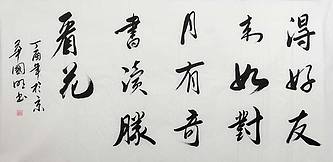 得好友
来如對
月有奇
書讀勝
看花
丁酉年於京
國明书